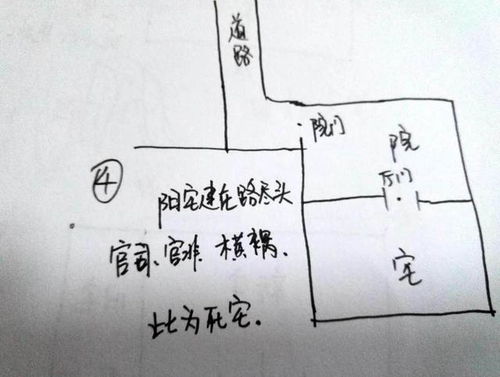 道路
院门
院
厅门
宅
④
阳宅建在路尽头
官司、官非、横祸.
此为死宅.